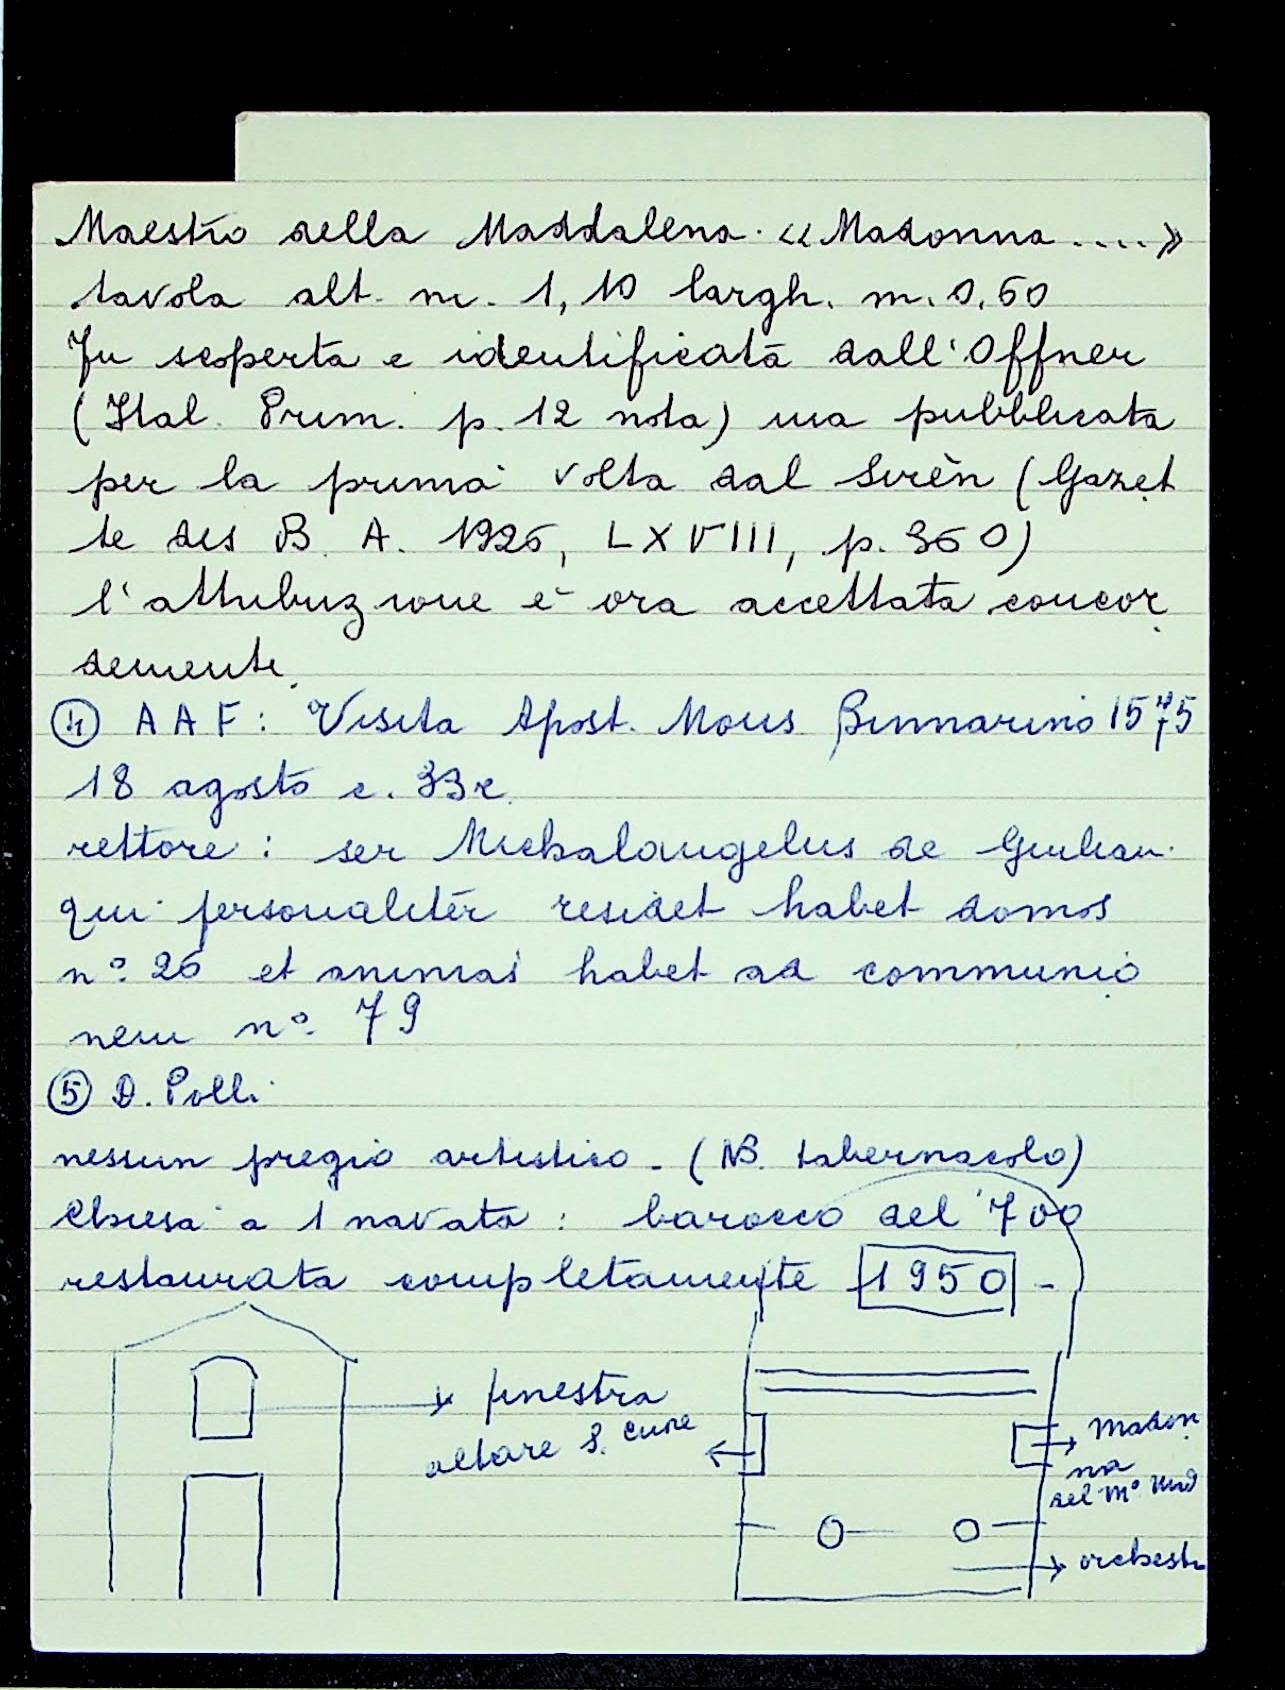 Maestro della Maddalena. «Madonna....»
tavola alt. m. 1,10 largh. m. 0,60
Fu scoperta e identificata dall'Offner
(Ital. Prim. p. 12 nota) ma pubblicata
per la prima volta dal Sirèn (Gazet
te des B. A. 1926, LXVIII, p. 360)
l'attribuzione è ora accettata concor
demente.
④ A A F: Visita Apost. Mons Binnarino 1575
18 agosto c. 33r.
rettore: ser Michalangelus de Giulian.
qui personalitēr residet habet domos
n° 26 et animas habet ad communio
nem n° 79
⑤ D. Polli
nessun pregio artistico - (NB. tabernacolo)
Chiesa a 1 navata: barocco del '700
restaurata completamente 1950 -
finestra
altare S. Cuore
Madon
na
del M°
orchest